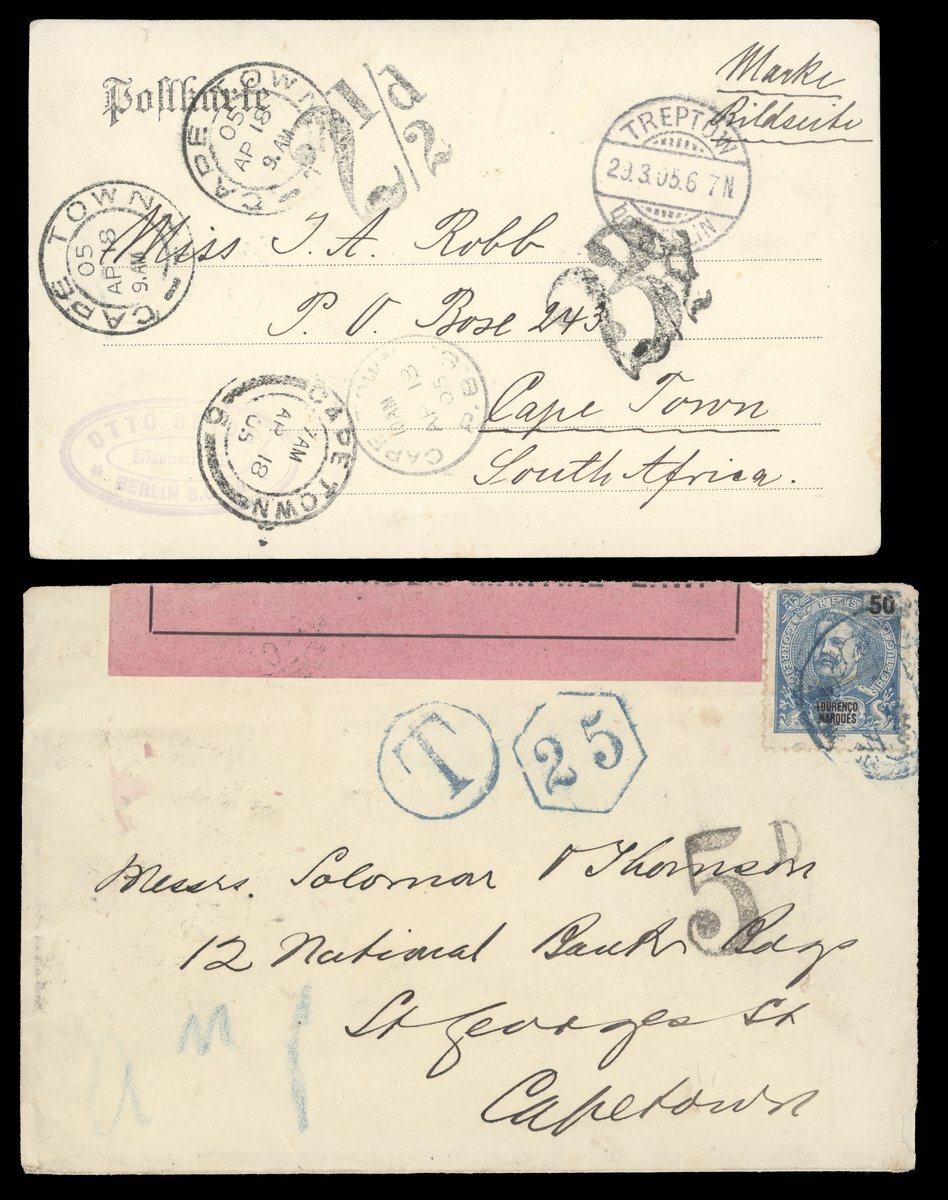 Postkarte
Marke
Bildseite
CAPE TOWN
05
AP 18
9. AM
1/2d
TREPTOW
29.3.05.6 7N
CAPE TOWN
05
AP 18
9. AM
Miss T. A. Robb
3d
P. O. Boxe 243
G.P.O. CAPE TOWN
AM
AP 18
05
Cape Town
CAPE TOWN
7 AM
AP 18
05
OTTO
BERLIN S.O.
South Africa.
50
CORREIOS
LOURENÇO
MARQUES
T
25
5D
Messrs. Solomon & Thomson
12 National Bank Bdgs
St Georges St
Capetown